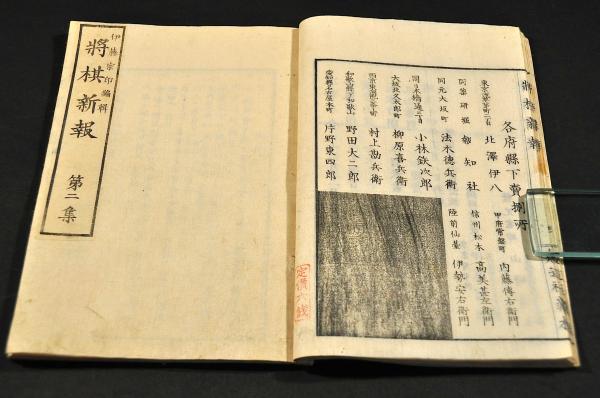 各府縣下賣捌所
北澤伊八
甲府常盤町 内藤傳右衛門
同藥研堀 報知社
信州松本 高美甚左衛門
同元大坂町 法木德兵衛
陸前仙臺 伊勢安右衛門
小林鉄次郎
大坂北久太郎町 柳原喜兵衛
村上勘兵衛
野田大二郎
愛知縣名古屋本町 片野東四郎
定價六錢
伊藤宗印編輯
將棋新報 第二集